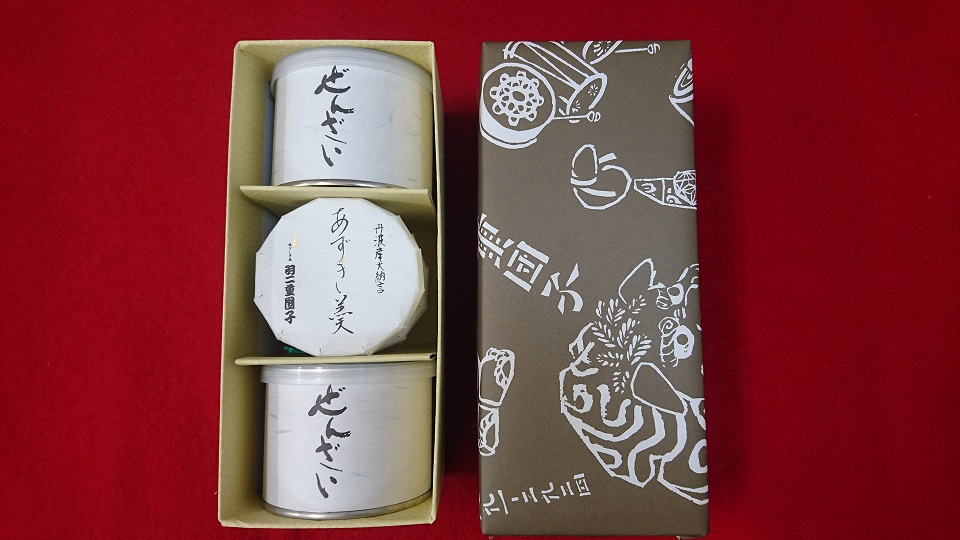 ぜんざい
丹波産大納言
あずき羹
羽二重団子
ぜんざい
団子